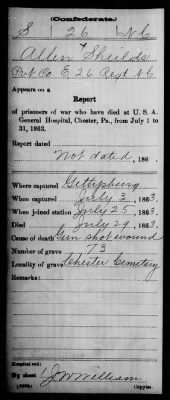 (Confederate.)
S | 26 | N.C.
Allen Shields
Pvt Co. E, 26 Regt N.C.
Appears on a
Report
of prisoners of war who have died at U. S. A.
General Hospital, Chester, Pa., from July 1 to
31, 1863.
Report dated
Not dated, 186 .
Where captured Gettysburg
When captured July 3, 1863.
When joined station July 25, 1863.
Died July 29, 1863.
Cause of death Gun shot wound
Number of grave 73
Locality of grave Chester Cemetery
Remarks:
sheet
J W William
Copyist.